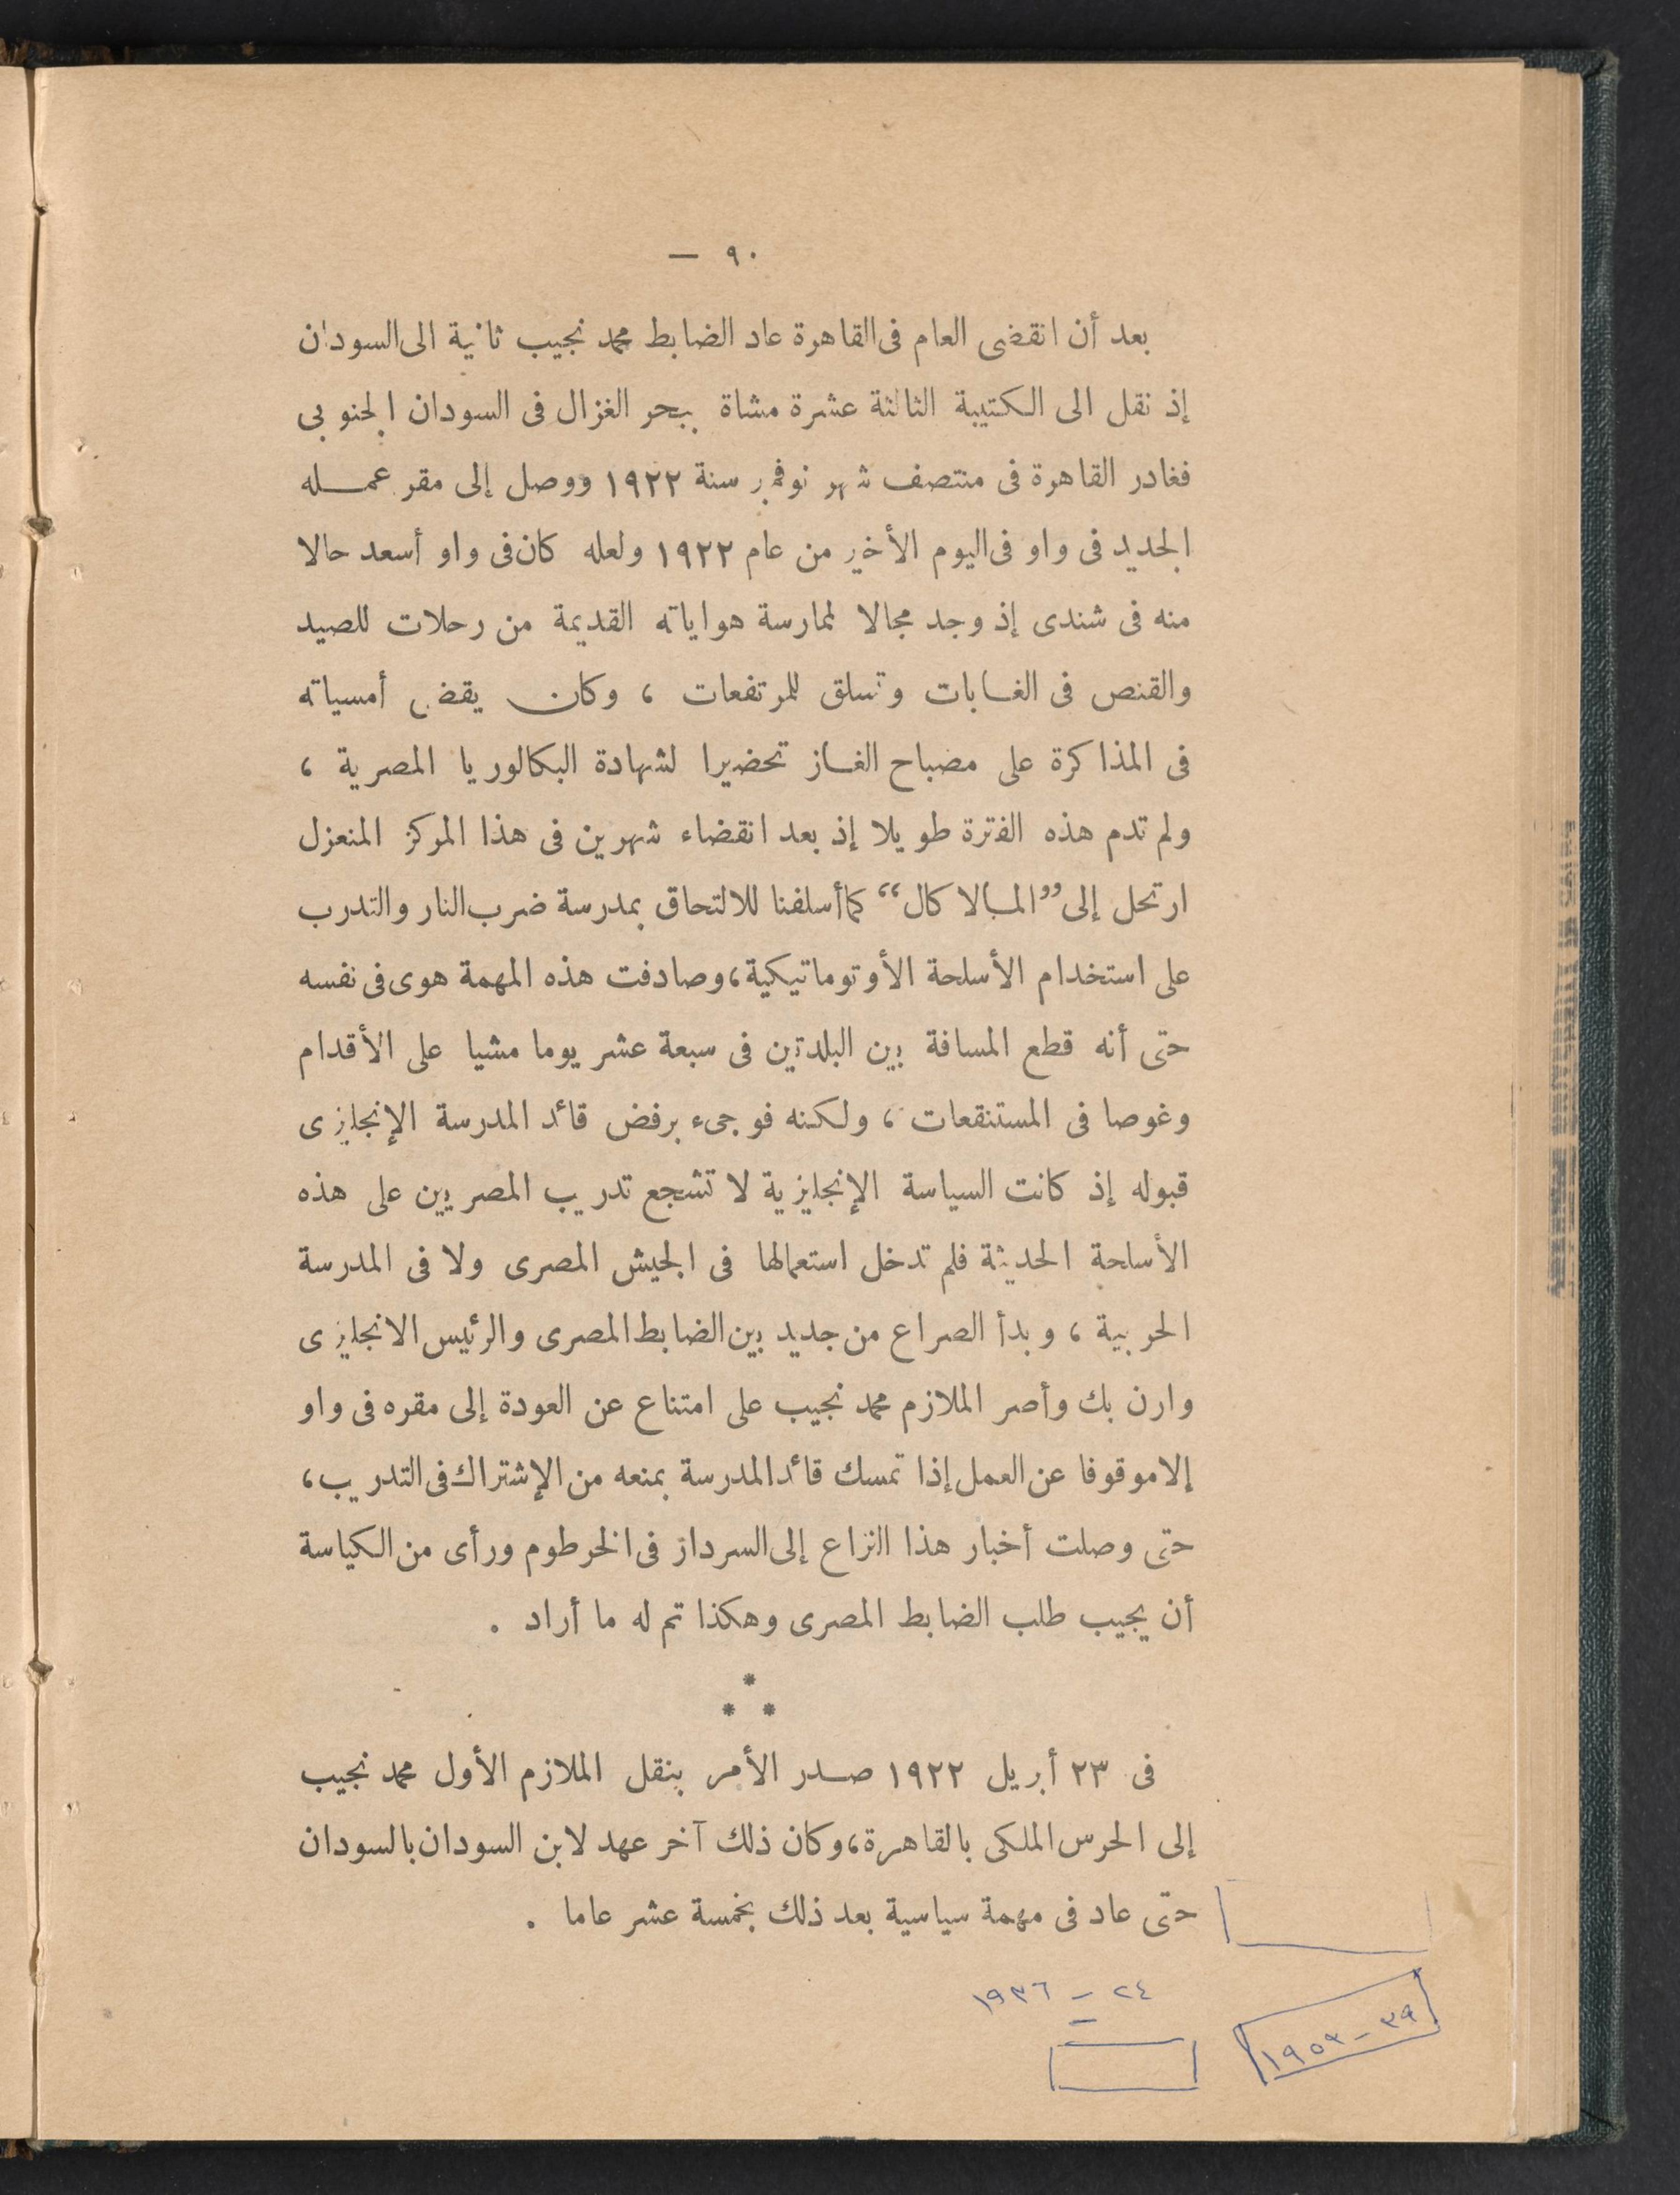 ٩٠ —
بعد أن انقضى العام فى القاهرة عاد الضابط محمد نجيب ثانية الى السودان
إذ نقل الى الكتيبة الثالثة عشرة مشاة ببحر الغزال فى السودان الجنوبى
فغادر القاهرة فى منتصف شهر نوفمبر سنة ١٩٢٢ ووصل إلى مقر عمله
الجديد فى واو فى اليوم الأخير من عام ١٩٢٢ ولعله كان فى واو أسعد حالا
منه فى شندى إذ وجد مجالا لممارسة هواياته القديمة من رحلات للصيد
والقنص فى الغابات وتسلق للمرتفعات ، وكان يقضى أمسياته
فى المذاكرة على مصباح الغاز تحضيرا لشهادة البكالوريا المصرية ،
ولم تدم هذه الفترة طويلا إذ بعد انقضاء شهرين فى هذا المركز المنعزل
ارتحل إلى ”المبالاكال“ كما أسلفنا للالتحاق بمدرسة ضرب النار والتدرب
على استخدام الأسلحة الأوتوماتيكية ، وصادفت هذه المهمة هوى فى نفسه
حتى أنه قطع المسافة بين البلدتين فى سبعة عشر يوما مشيا على الأقدام
وغوصا فى المستنقعات ، ولكنه فوجىء برفض قائد المدرسة الإنجليزى
قبوله إذ كانت السياسة الإنجليزية لا تشجع تدريب المصريين على هذه
الأسلحة الحديثة فلم تدخل استعمالها فى الجيش المصرى ولا فى المدرسة
الحربية ، وبدأ الصراع من جديد بين الضابط المصرى والرئيس الانجليزى
وارن بك وأصر الملازم محمد نجيب على امتناع عن العودة إلى مقره فى واو
إلا موقوفا عن العمل إذا تمسك قائد المدرسة بمنعه من الإشتراك فى التدريب ،
حتى وصلت أخبار هذا النزاع إلى السردار فى الخرطوم ورأى من الكياسة
أن يجيب طلب الضابط المصرى وهكذا تم له ما أراد .
* * *
فى ٢٣ أبريل ١٩٢٢ صدر الأمر بنقل الملازم الأول محمد نجيب
إلى الحرس الملكى بالقاهرة ، وكان ذلك آخر عهد لابن السودان بالسودان
حتى عاد فى مهمة سياسية بعد ذلك بخمسة عشر عاما .
٢٤ – ١٩٣٦
٣٩ – ١٩٥٣